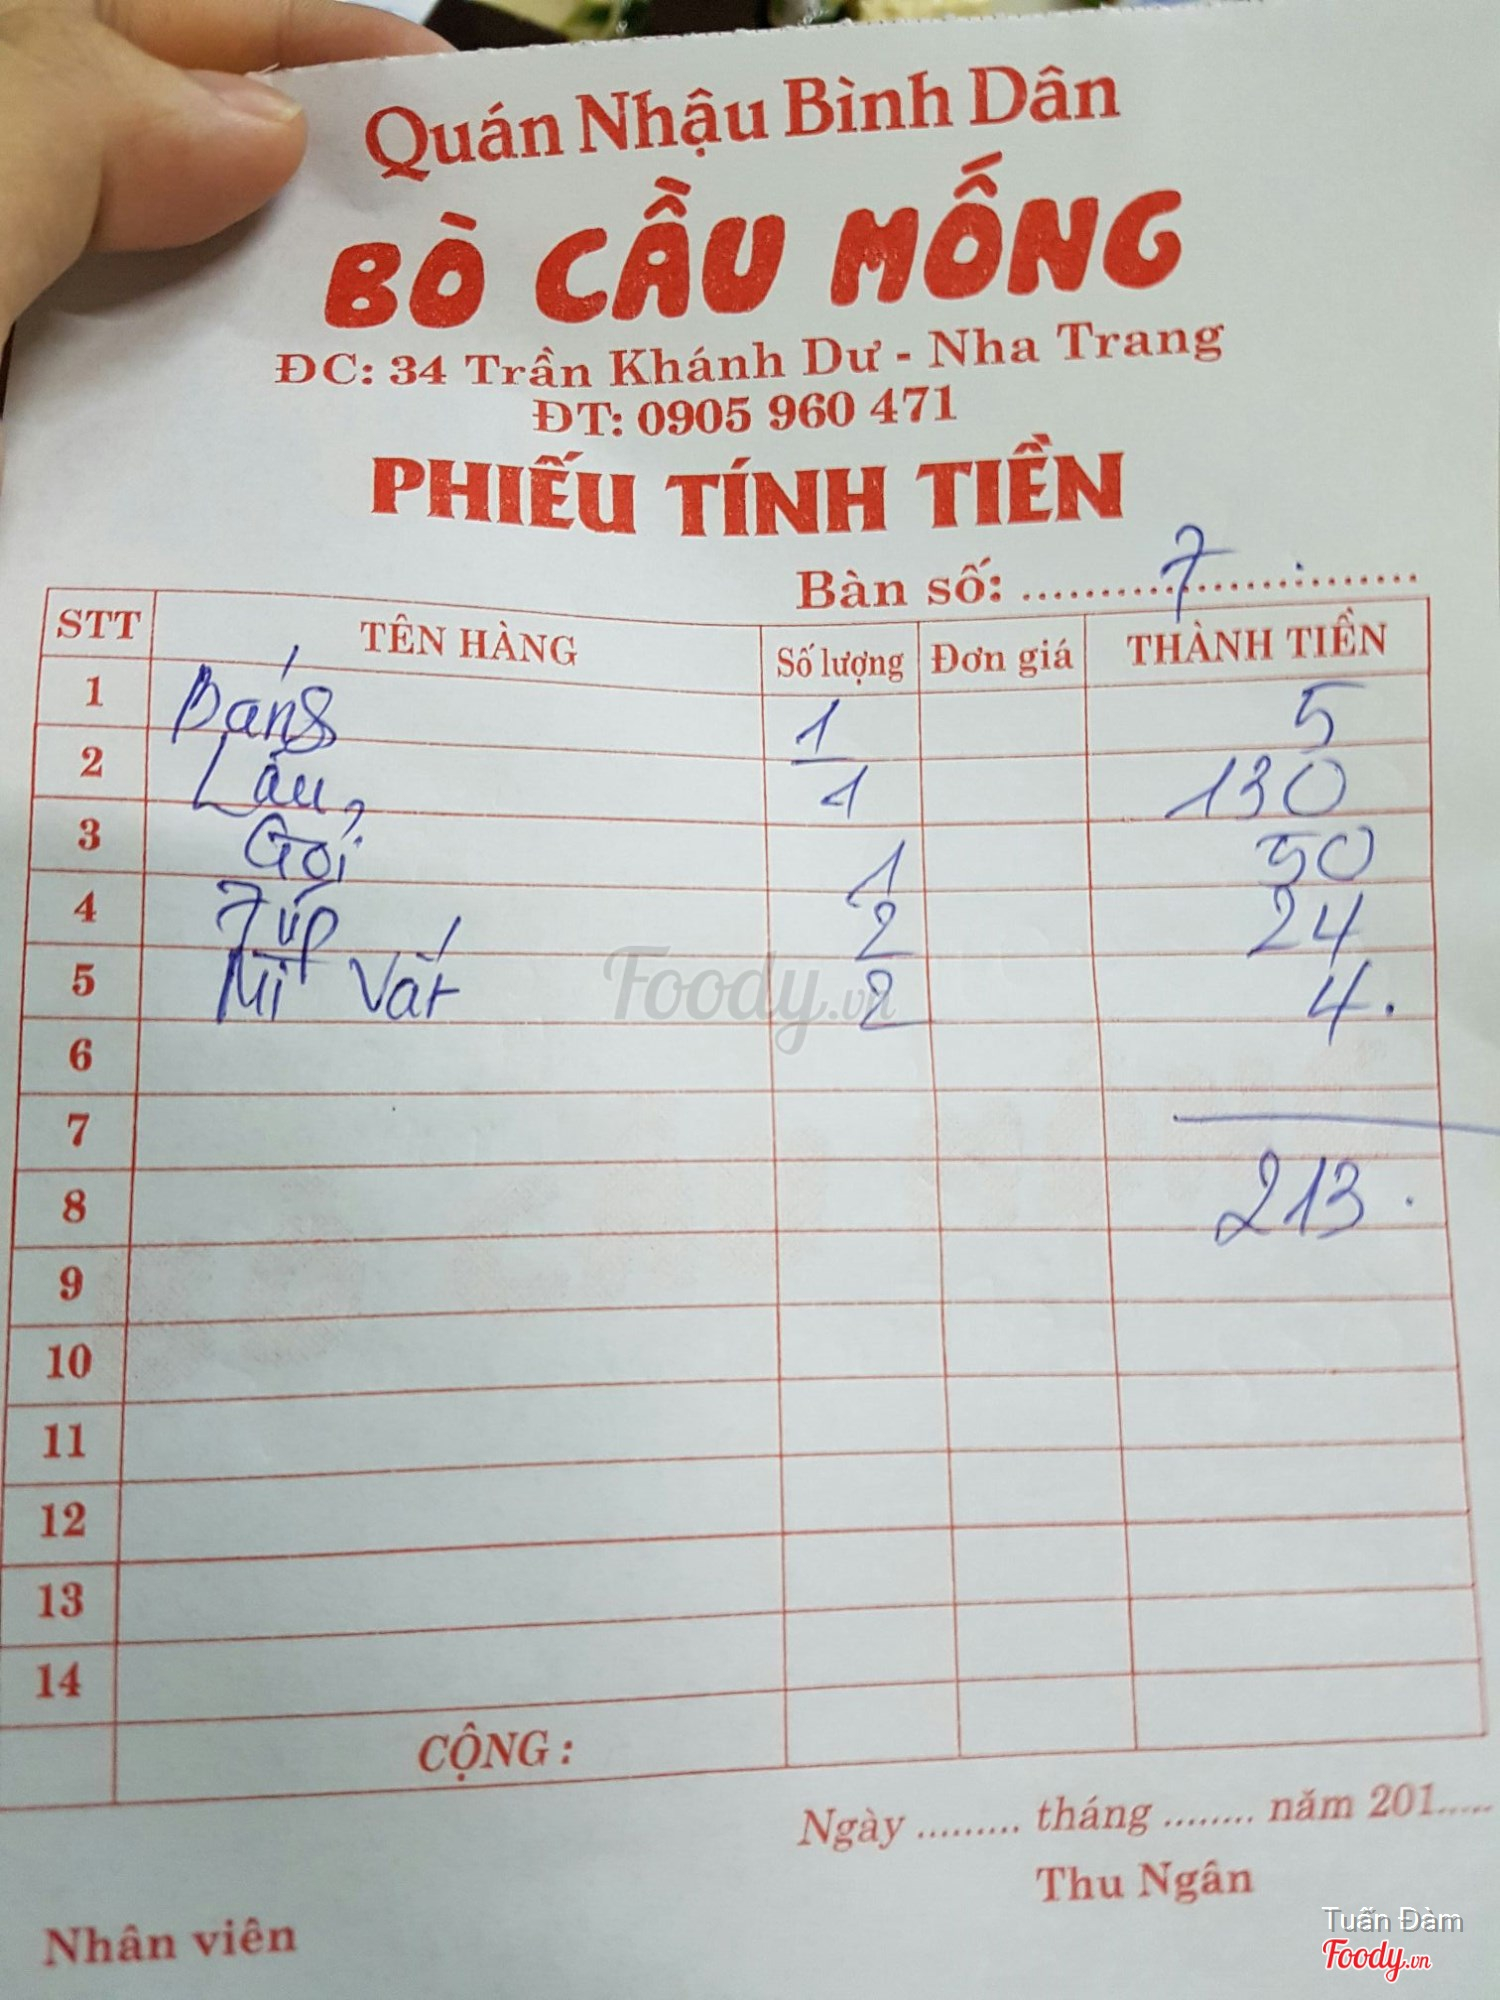 Quán Nhậu Bình Dân
BÒ CẦU MỐNG
ĐC: 34 Trần Khánh Dư - Nha Trang
ĐT: 0905 960 471
PHIẾU TÍNH TIỀN
Bàn số: 7
STT TÊN HÀNG Số lượng Đơn giá THÀNH TIỀN
1 Bánh 1 5
2 Lẩu 1 130
3 Gỏi 1 50
4 2 24
5 Mì Vắt 2 4.
6
7
8 213.
9
10
11
12
13
14
CỘNG :
Ngày ......... tháng ........ năm 201.....
Thu Ngân
Nhân viên
Foody.vn
Tuấn Đàm
Foody.vn